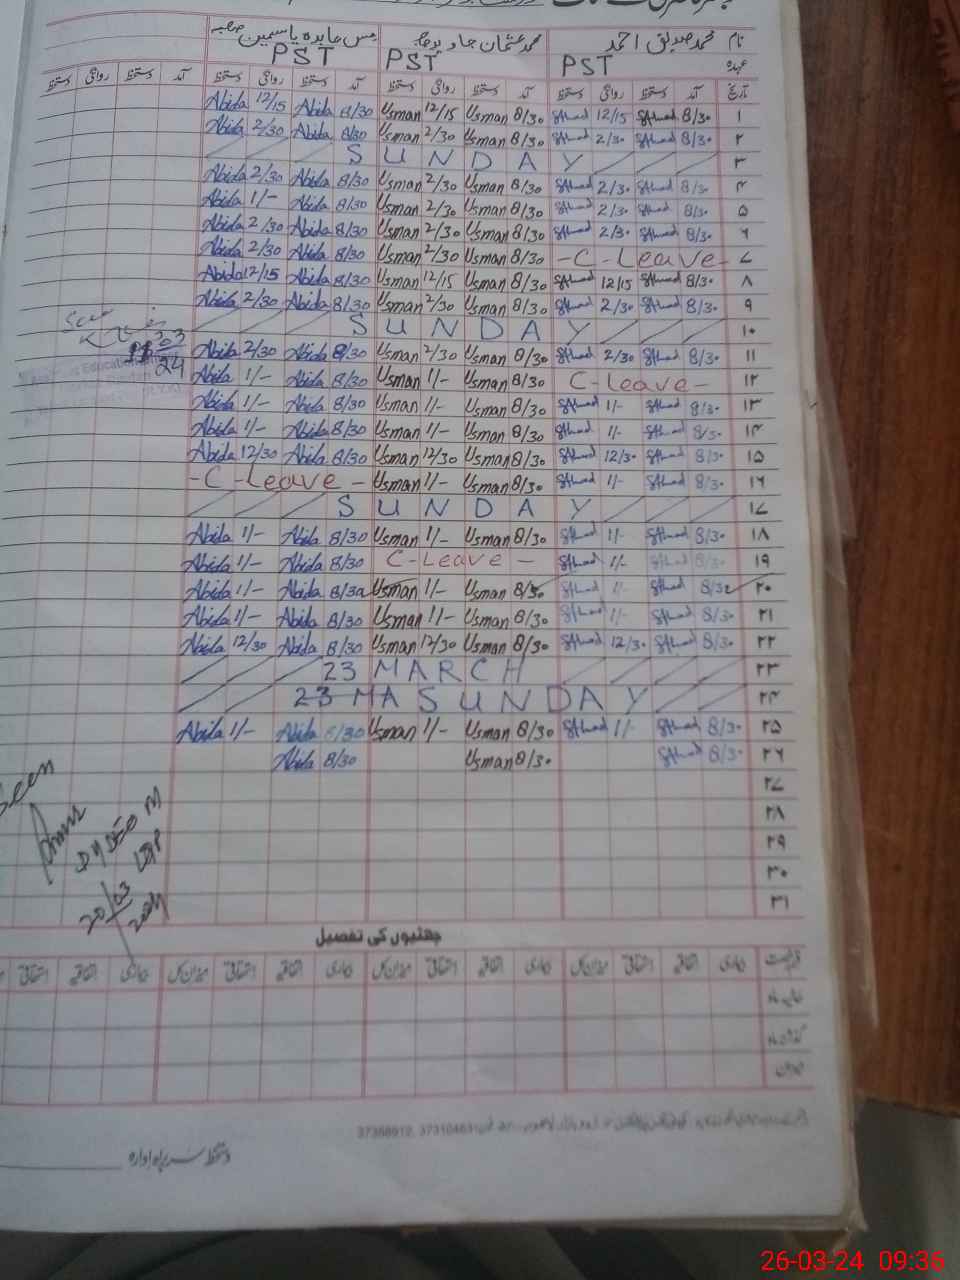 نام محمد صدیق احمد محمد عثمان جاوید مس عابدہ یاسمین
عہدہ PST PST PST
تاریخ آمد دستخط روانگی دستخط آمد دستخط روانگی دستخط آمد دستخط روانگی دستخط آمد دستخط روانگی دستخط
Abida 12/15 Abida 8/30 Usman 12/15 Usman 8/30 SAhmad 12/15 SAhmad 8/30 ۱
Abida 2/30 Abida 8/30 Usman 2/30 Usman 8/30 SAhmad 2/30 SAhmad 8/30 ۲
SUNDAY ۳
Abida 2/30 Abida 8/30 Usman 2/30 Usman 8/30 SAhmad 2/30 SAhmad 8/30 ۴
Abida 1/- Abida 8/30 Usman 2/30 Usman 8/30 SAhmad 2/30 SAhmad 8/30 ۵
Abida 2/30 Abida 8/30 Usman 2/30 Usman 8/30 SAhmad 2/30 SAhmad 8/30 ۶
Abida 2/30 Abida 8/30 Usman 2/30 Usman 8/30 -C-Leave- ۷
Abida 12/15 Abida 8/30 Usman 12/15 Usman 8/30 SAhmad 12/15 SAhmad 8/30 ۸
Abida 2/30 Abida 8/30 Usman 2/30 Usman 8/30 SAhmad 2/30 SAhmad 8/30 ۹
Seen SUNDAY ۱۰
Abida 2/30 Abida 8/30 Usman 2/30 Usman 8/30 SAhmad 2/30 SAhmad 8/30 ۱۱
Abida 1/- Abida 8/30 Usman 1/- Usman 8/30 C-Leave- ۱۲
Abida 1/- Abida 8/30 Usman 1/- Usman 8/30 SAhmad 1/- SAhmad 8/30 ۱۳
Abida 1/- Abida 8/30 Usman 1/- Usman 8/30 SAhmad 1/- SAhmad 8/30 ۱۴
Abida 12/30 Abida 8/30 Usman 12/30 Usman 8/30 SAhmad 12/30 SAhmad 8/30 ۱۵
-C-Leave- Usman 1/- Usman 8/30 SAhmad 1/- SAhmad 8/30 ۱۶
SUNDAY ۱۷
Abida 1/- Abida 8/30 Usman 1/- Usman 8/30 SAhmad 1/- SAhmad 8/30 ۱۸
Abida 1/- Abida 8/30 C-Leave - SAhmad 1/- SAhmad 8/30 ۱۹
Abida 1/- Abida 8/30 Usman 1/- Usman 8/30 SAhmad 1/- SAhmad 8/30 ۲۰
Abida 1/- Abida 8/30 Usman 1/- Usman 8/30 SAhmad 1/- SAhmad 8/30 ۲۱
Abida 12/30 Abida 8/30 Usman 12/30 Usman 8/30 SAhmad 12/30 SAhmad 8/30 ۲۲
23 MARCH ۲۳
23 MA SUNDAY ۲۴
Abida 1/- Abida 8/30 Usman 1/- Usman 8/30 SAhmad 1/- SAhmad 8/30 ۲۵
Abida 8/30 Usman 8/30 SAhmad 8/30 ۲۶
۲۷
۲۸
۲۹
۳۰
۳۱
Seen
20/03
2024
چھٹیوں کی تفصیل
دستخط سربراہ ادارہ
26-03-24 09:36